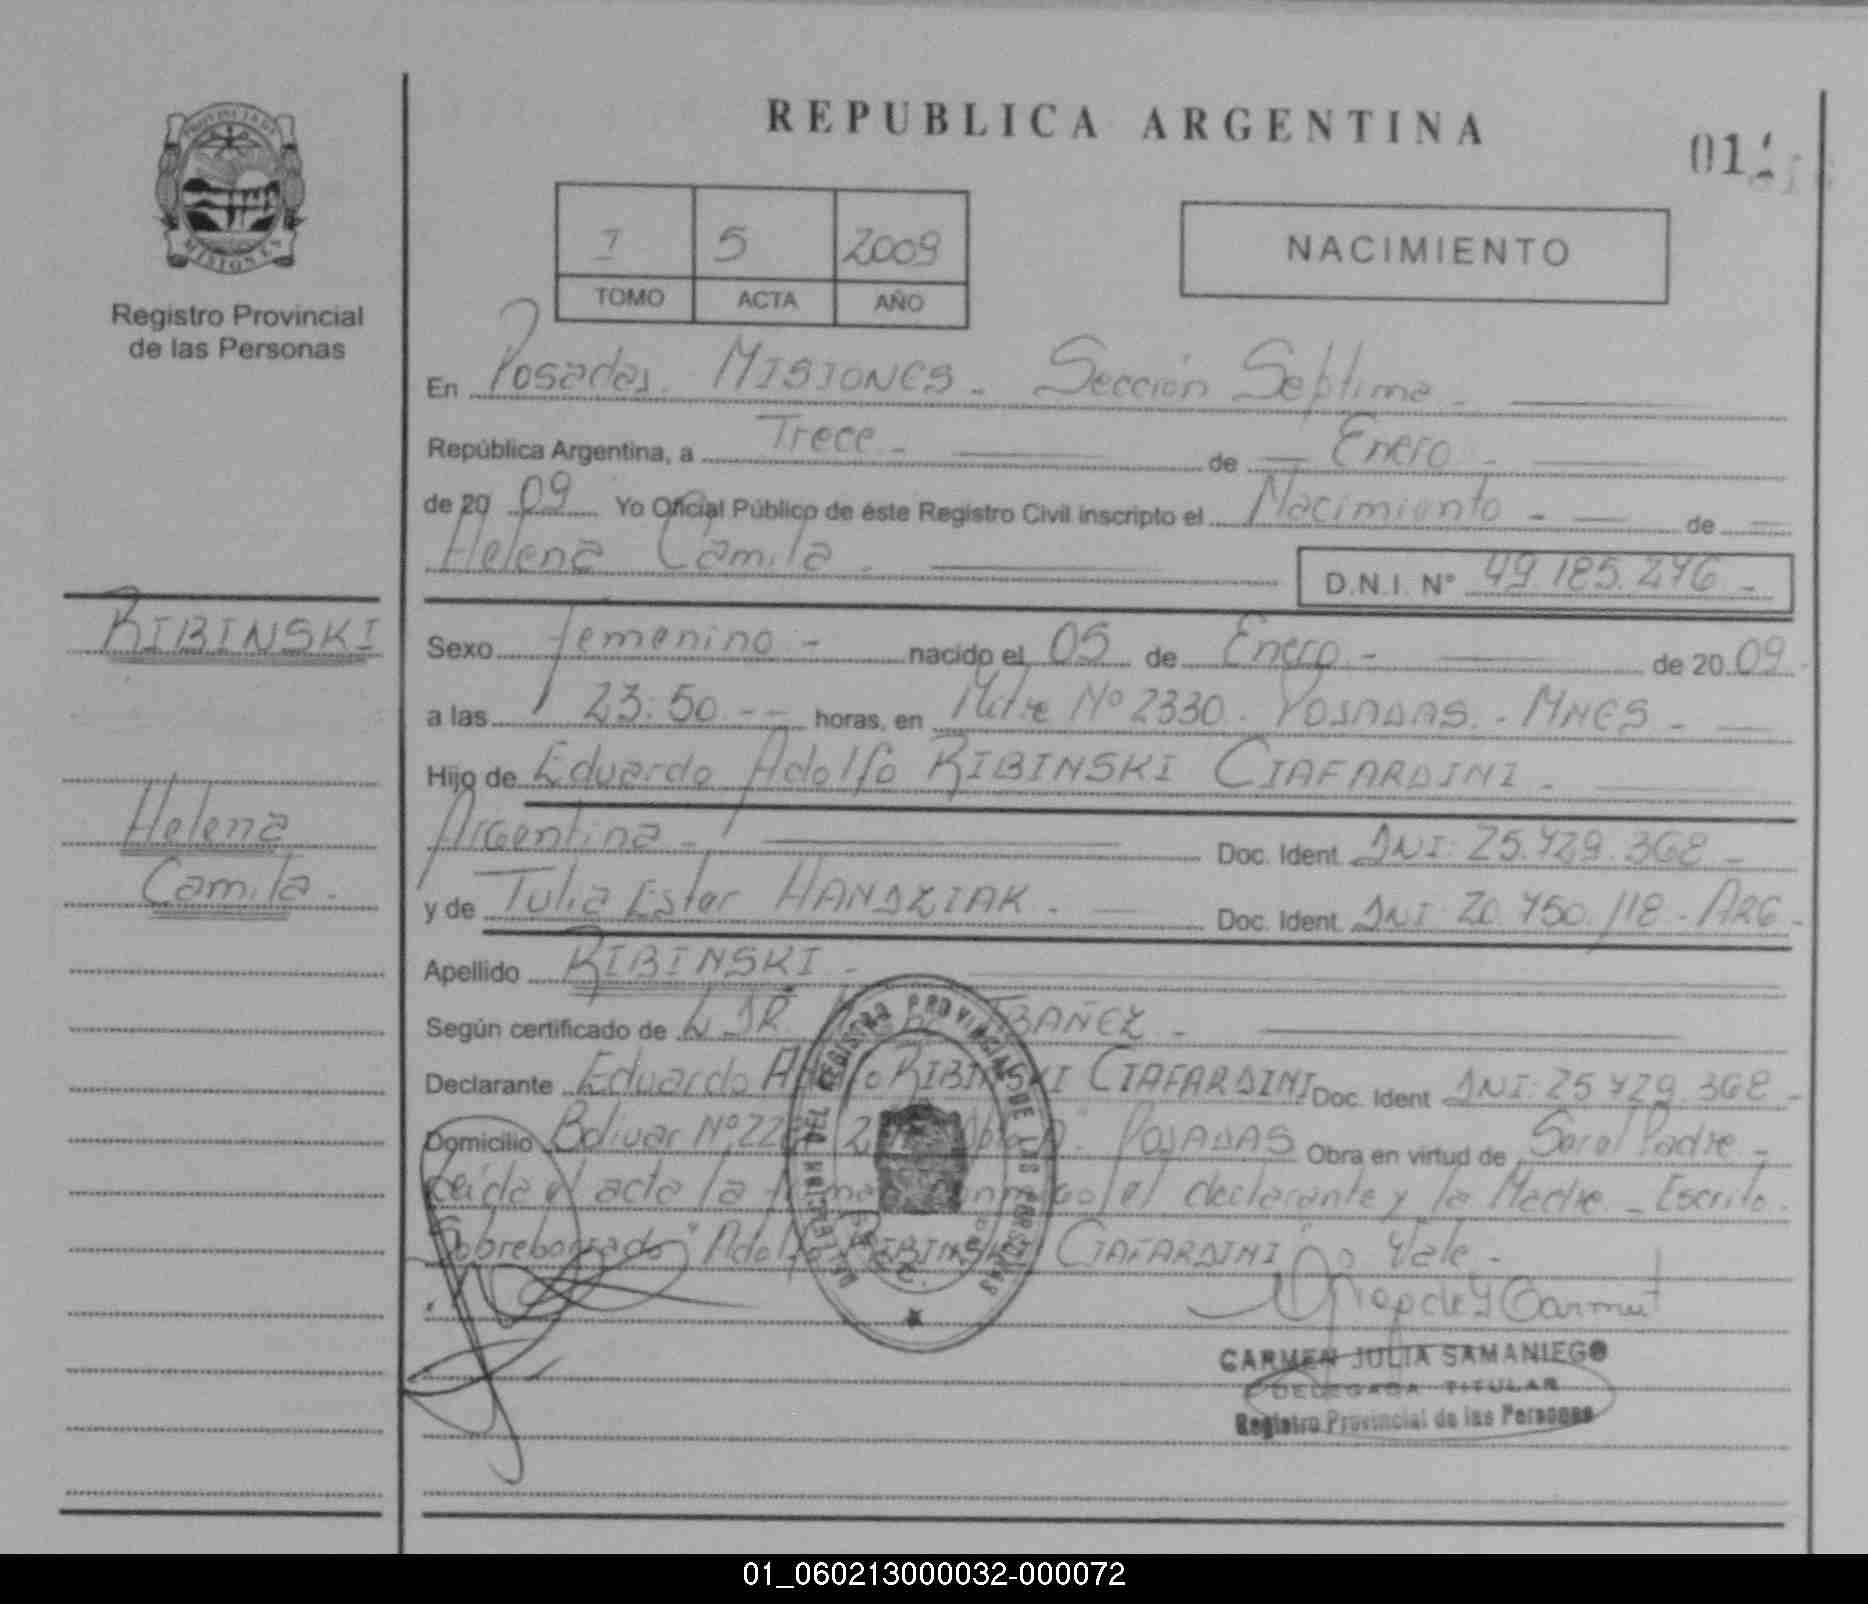 REPUBLICA ARGENTINA
PROVINCIA DE
MISIONES
Registro Provincial
de las Personas
I 5 2009
TOMO ACTA AÑO
NACIMIENTO
En Posadas. MISIONES - Sección Septima -
República Argentina, a Trece - de Enero -
de 20 09 Yo Oficial Público de éste Registro Civil inscripto el Nacimiento - de
Helena Camila - D.N.I. N° 49.185.246 -
RIBINSKI
Helena
Camila -
Sexo femenino - nacido el 05 de Enero - de 20 09 -
a las 23:50 -- horas, en Mitre Nº 2330. POSADAS. - MNES -
Hijo de Eduardo Adolfo RIBINSKI CIAFARDINI -
Argentina - Doc. Ident DNI: 25.429.368 -
y de Julia Ester HANDZIAK - Doc. Ident DNI: 20.450.118 - ARG -
Apellido RIBINSKI -
Según certificado de IBAÑEZ -
Declarante Eduardo Adolfo RIBINSKI CIAFARDINI Doc. Ident DNI: 25.429.368 -
Domicilio Bolivar Nº POSADAS Obra en virtud de Ser el Padre -
Leida el acta la firman conmigo el declarante y la Madre - Escrito.
Sobreborrado "Adolfo RIBINSKI CIAFARDINI" Vale -
REGISTRO PROVINCIAL DE LAS PERSONAS
CARMEN JULIA SAMANIEGO
DELEGADA TITULAR
Registro Provincial de las Personas
01_060213000032-000072